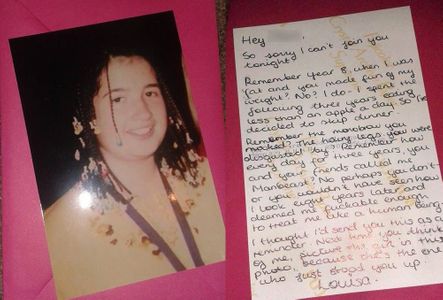 Hey
So sorry I can't join you
tonight.
Remember year 8, when I was
fat and you made fun of my
weight? No? I do - I spent the
following three years eating
less than an apple a day. So I've
decided to skip dinner.
Remember the monobrow you
mocked? The hairy legs you were
disgusted by? Remember how
every day for three years, you
and your friends called me
Manbeast? No, perhaps you don't
or you wouldn't have seen how
I look eight years later and
deemed me fuckable enough
to treat me like a human being.
I thought I'd send you this as a
reminder. Next time you think
of me, picture this girl in this
photo, because she's the one
who just stood you up.
Louisa.